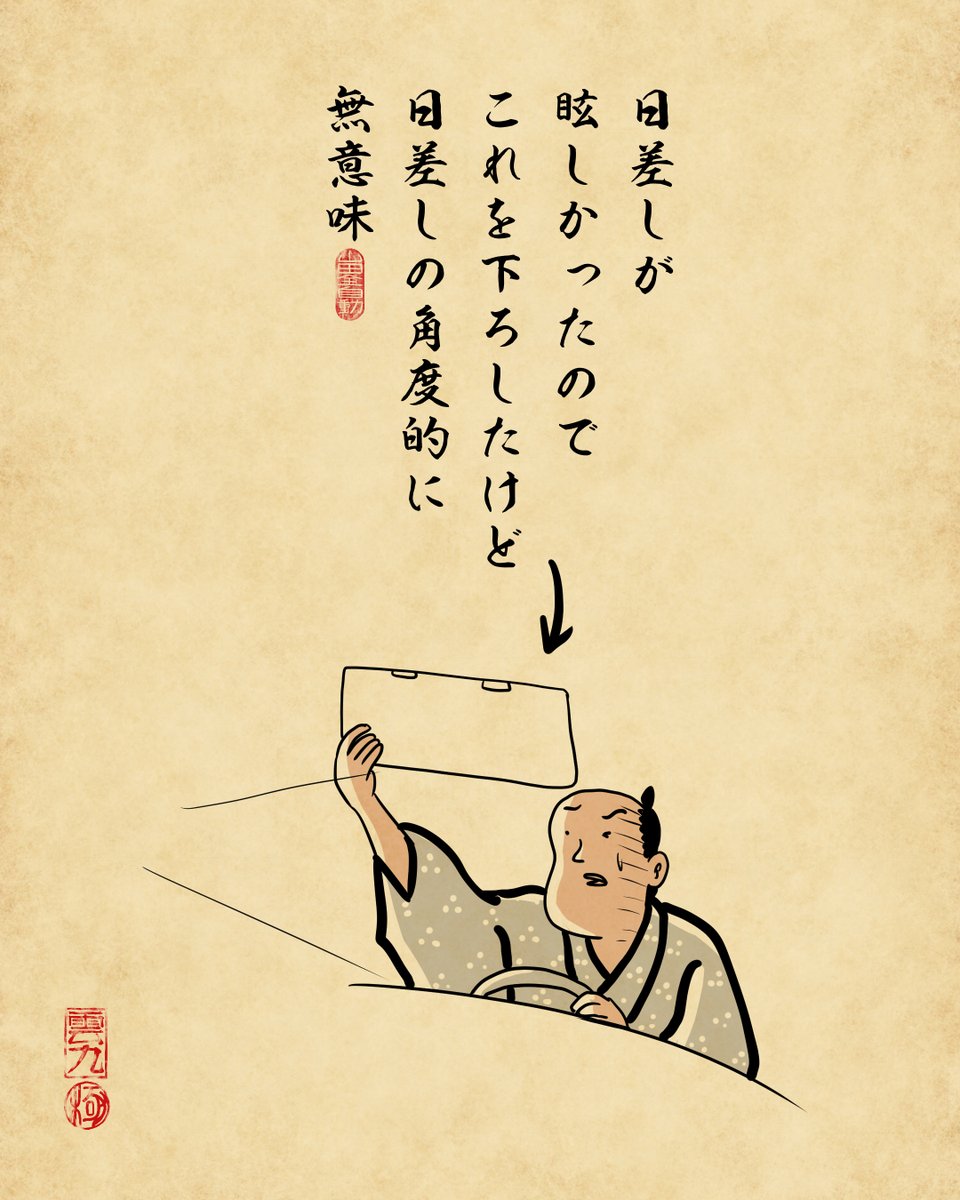 日差しが
眩しかったので
これを下ろしたけど
日差しの角度的に
無意味
雲九
極